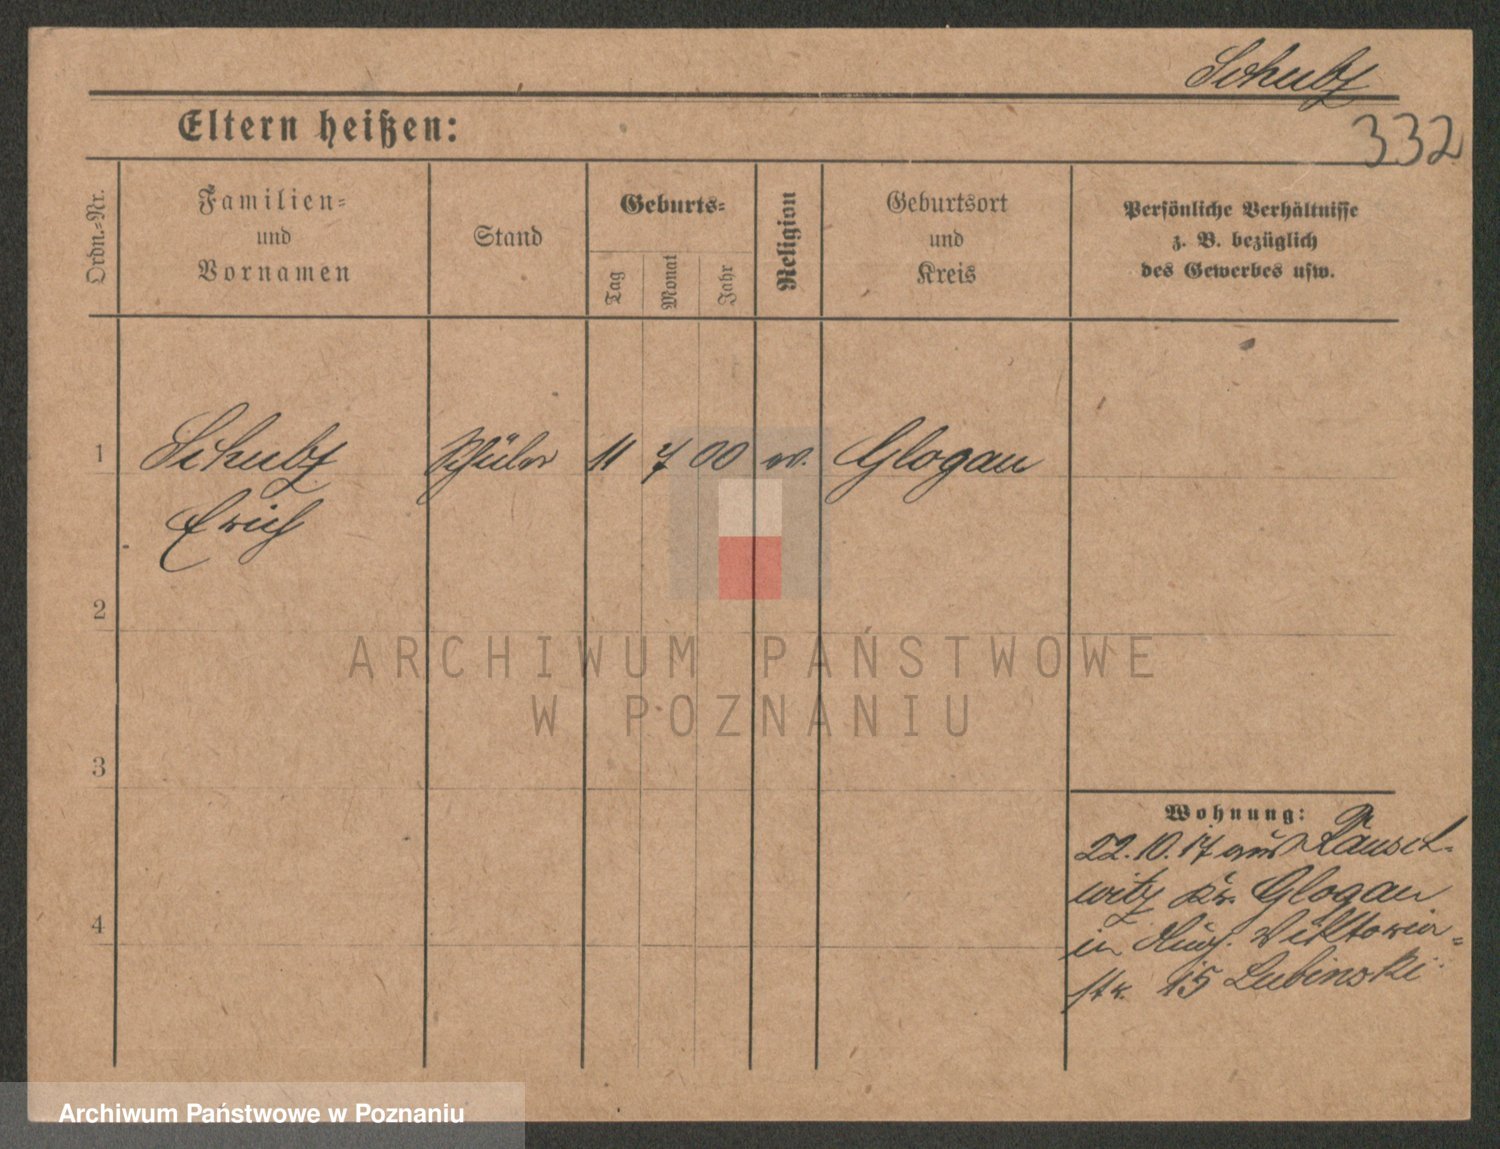 Schulz
332
Eltern heißen:
Ordn.-Nr.
Familien=
und
Vornamen
Stand
Geburts=
Tag
Monat
Jahr
Religion
Geburtsort
und
Kreis
Persönliche Verhältnisse
z. B. bezüglich
des Gewerbes usw.
1
Schulz
Erich
Schüler
11 7 00
ev.
Glogau
2
3
4
Wohnung:
22.10.17 aus Rausch-
witz Kr. Glogau
in Aug. Viktoria-
str. 15 Lubinski
ARCHIWUM PAŃSTWOWE
W POZNANIU
Archiwum Państwowe w Poznaniu